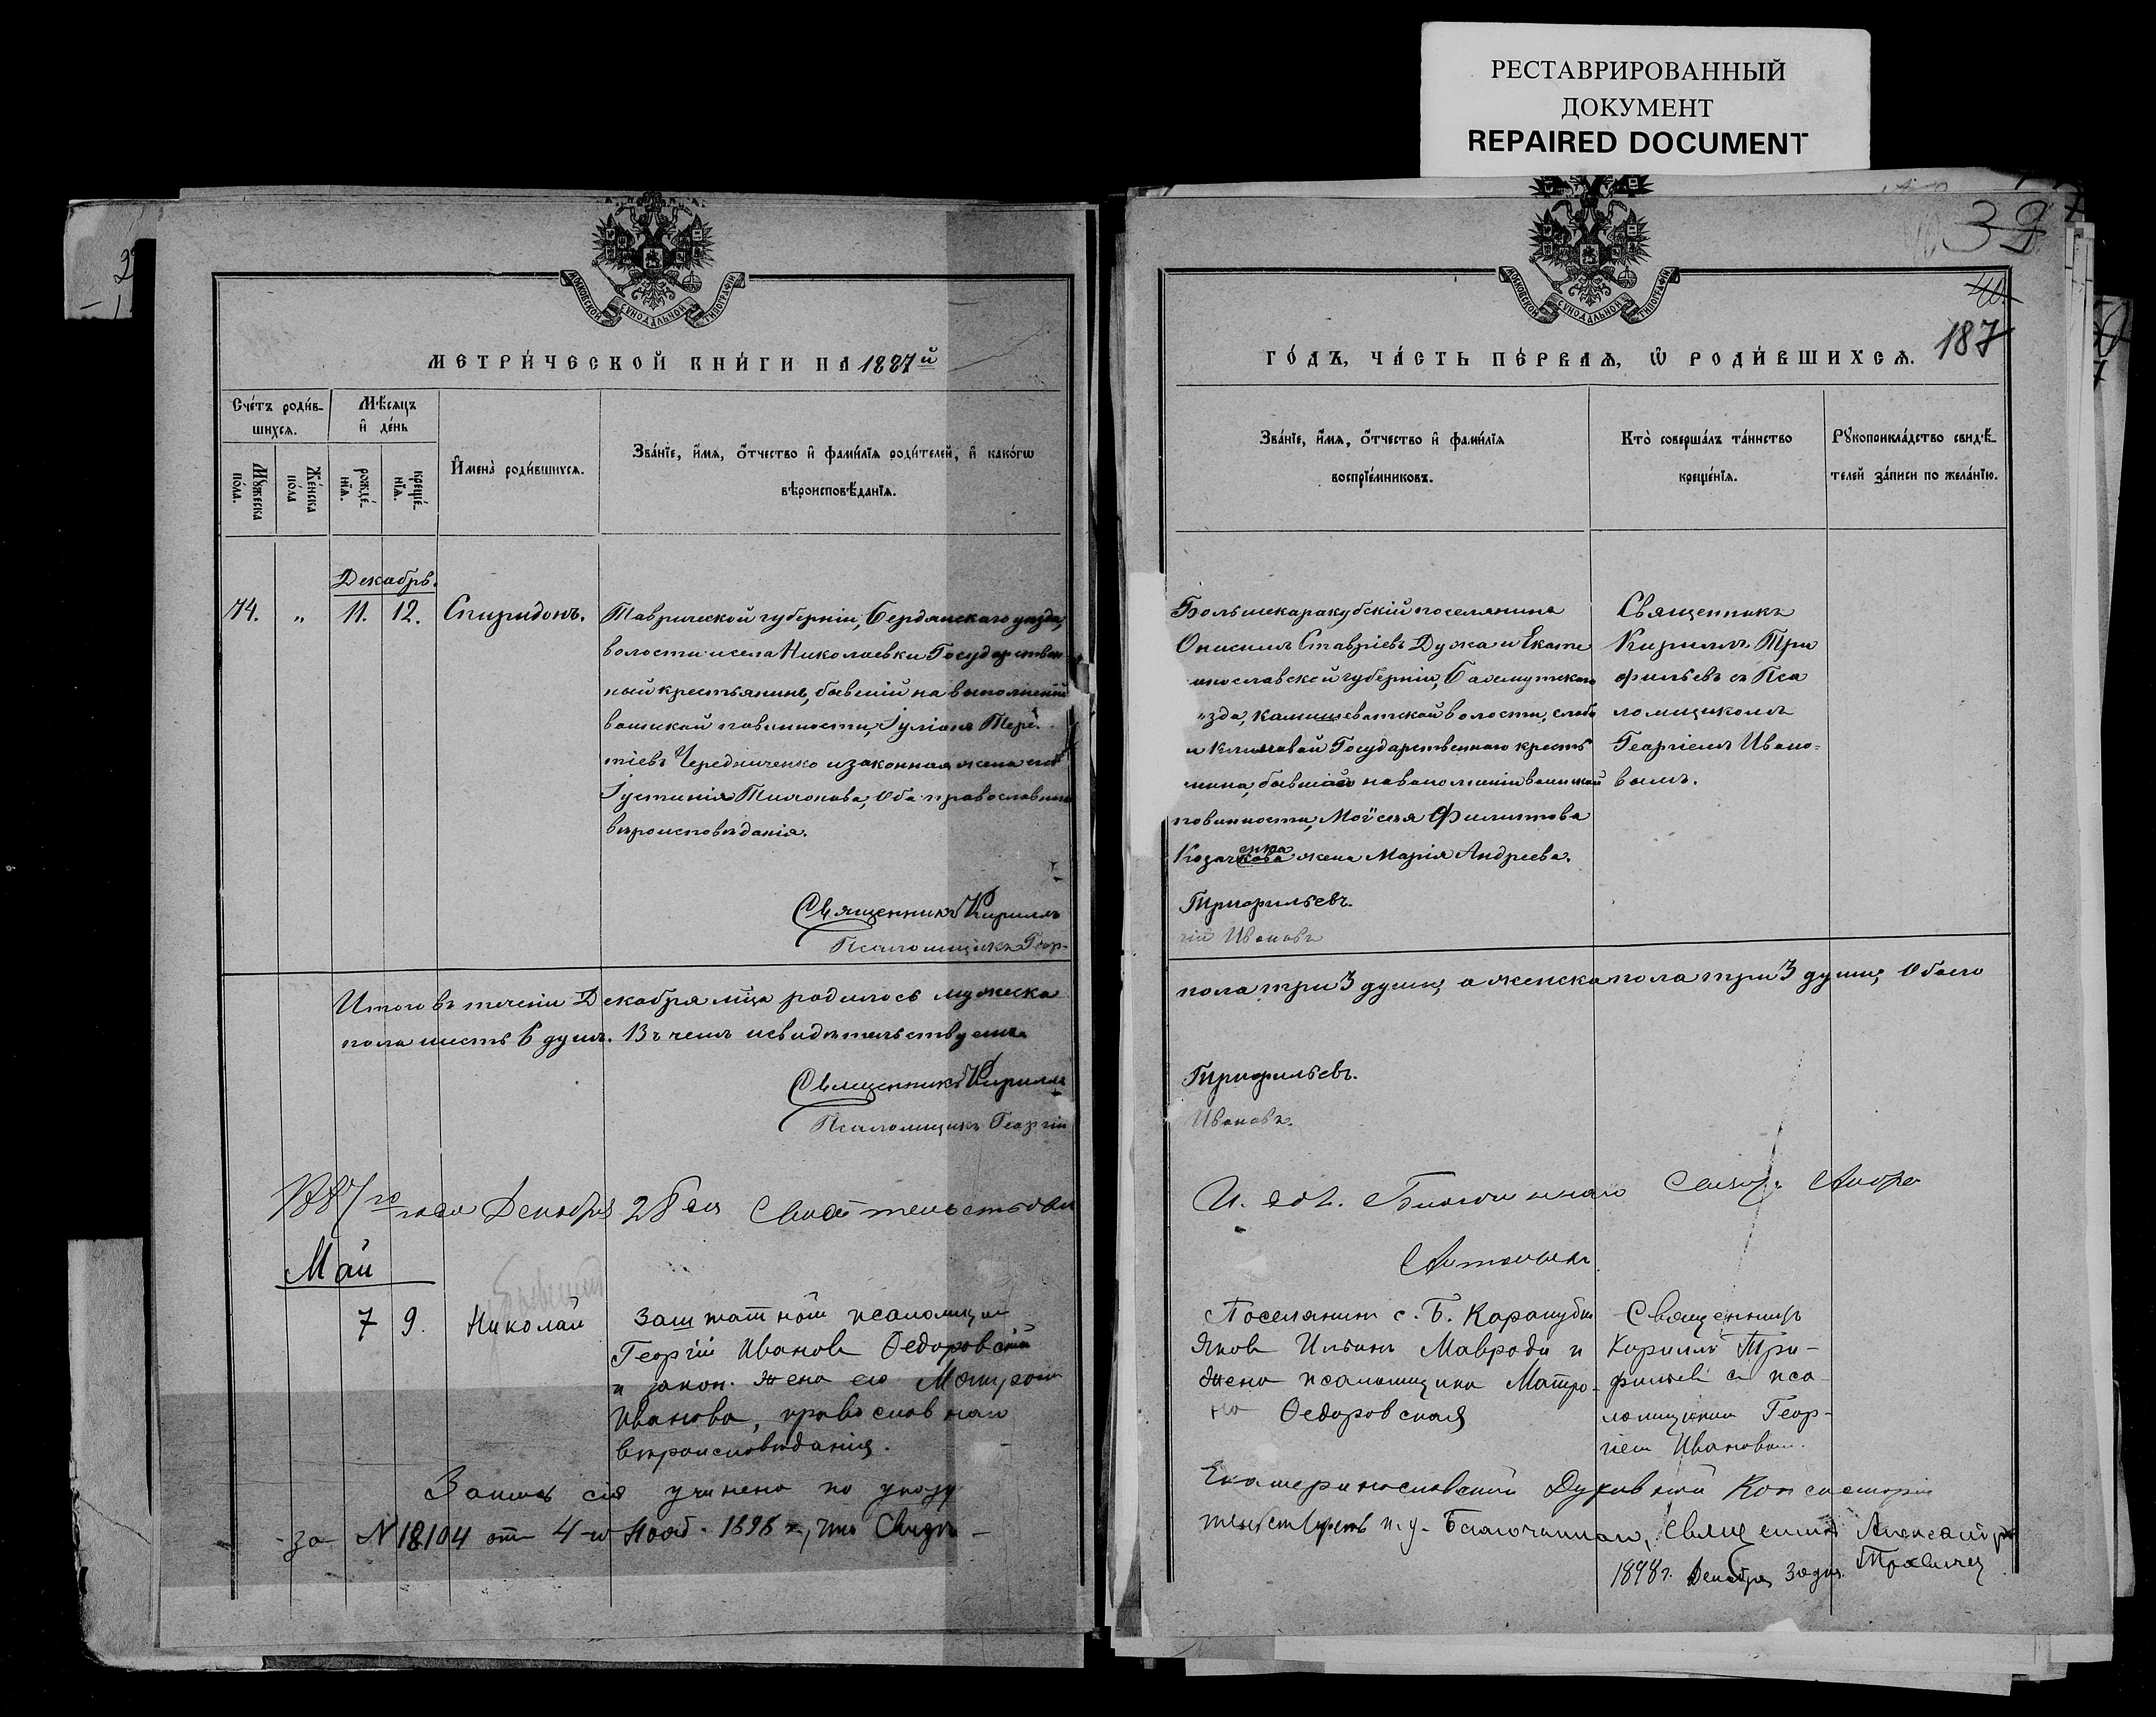 РЕСТАВРИРОВАННЫЙ
ДОКУМЕНТ
REPAIRED DOCUMENT
39
187
МОСКОВСКОЙ СѴНОДАЛЬНОЙ ТИПОГРАФІИ
МЕТРИ́ЧЕСКОЙ КНИ́ГИ НА 1887й
Сче́тъ роди́в-
шихсѧ.
Мѣ́сѧцъ
и҆ де́нь
Мꙋ́жеска
по́ла.
Же́нска
по́ла
рожде́-
нїѧ.
креще́-
нїѧ.
И҆мена̀ роди́вшихсѧ.
Зва́нїе, и҆́мѧ, ѻ҆́тчество и҆ фамі́лїѧ роди́телей, и҆ како́гѡ
вѣроисповѣ́данїѧ.
Декабрь.
74.
"
11.
12.
Спиридонъ.
Таврической губерніи, Бердянскаго уѣзда,
волости и села Николаевки Государствен-
ный крестьянинъ, бывшій на выполненіи
воинской повинности, Іуліанъ Терен-
тіевъ Чередниченко и законная жена его
Іустинія Тихонова, оба православнаго
вѣроисповѣданія.
Священникъ Кириллъ
Псаломщикъ Геор-
Итого въ теченіи Декабря мѣца родилось мужеска
пола шесть 6 душъ. Въ чемъ и свидѣтельствуемъ
Священникъ Кириллъ
Псаломщикъ Георгій
1887го года Декабря 28 дня Свидѣтельствовалъ
Май
7
9.
Николай
Заштатный псаломщикъ
Георгій Ивановъ Ѳедоровскій
и закон. жена его Матрона
Иванова, православнаго
вѣроисповѣданія.
Запись сія учинена по указу
за №18104 отъ 4-го Нояб. 1898 г., что Свидѣ-
МОСКОВСКОЙ СѴНОДАЛЬНОЙ ТИПОГРАФІИ
ГО́ДЪ, ЧА́СТЬ ПЕ́РВАѦ, Ѡ҆ РОДИ́ВШИХСѦ.
Зва́нїе, и҆́мѧ, ѻ҆́тчество и҆ фамі́лїѧ
воспрїе́мниковъ.
Кто̀ соверша́лъ та́инство
креще́нїѧ.
Рꙋкоприкла́дство свидѣ́-
телей за́писи по жела́нїю.
Большекаракубскій поселянинъ
Онисимъ Ставріевъ Дужа и Екате
инославской губерніи, Бахмутскаго
ѣзда, Камышеватской волости, слобо
и Климовой Государственнаго кресть
нина, бывшаго на выполненіи воинской
повинности, Моѵсея Филиппова
Козаченка жена Марія Андреева.
Священникъ
Кириллъ Три
фильевъ съ Пса
ломщикомъ
Георгіемъ Ивано-
вымъ.
Трифильевъ.
гій Ивановъ
пола три 3 души, а женска пола три 3 души, обоего
Трифильевъ.
Ивановъ.
И. об. Благочиннаго
Поселянинъ с. Б. Каракубы
Яковъ Ильинъ Мавроди и
жена псаломщика Матро-
на Ѳедоровская
Священникъ
Кириллъ Три-
фильевъ съ пса-
ломщикомъ Геор-
гіемъ Ивановымъ.
Екатеринославской Духовной Консисторіи
тельствуетъ и. д. Благочиннаго, Священникъ Александръ
1898 г. Декабря 30 дня.